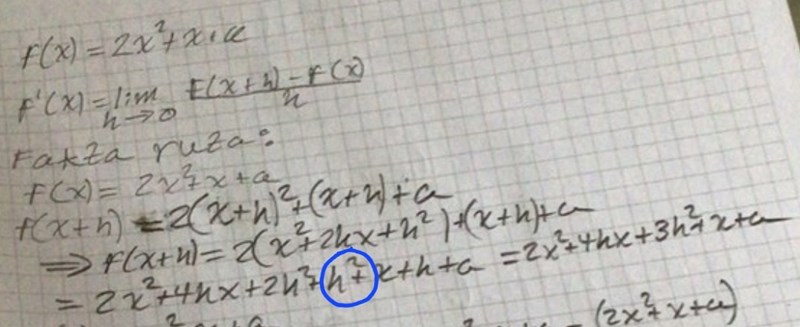 f(x) = 2x²+x+a
f'(x) = lim h→0 f(x+h) - f(x) / h
Fakta ruta:
f(x) = 2x²+x+a
f(x+h) = 2(x+h)²+(x+h)+a
⇒ f(x+h) = 2(x²+2hx+h²)+(x+h)+a
= 2x²+4hx+2h²+h²+x+h+a = 2x²+4hx+3h²+x+a
(2x²+x+a)